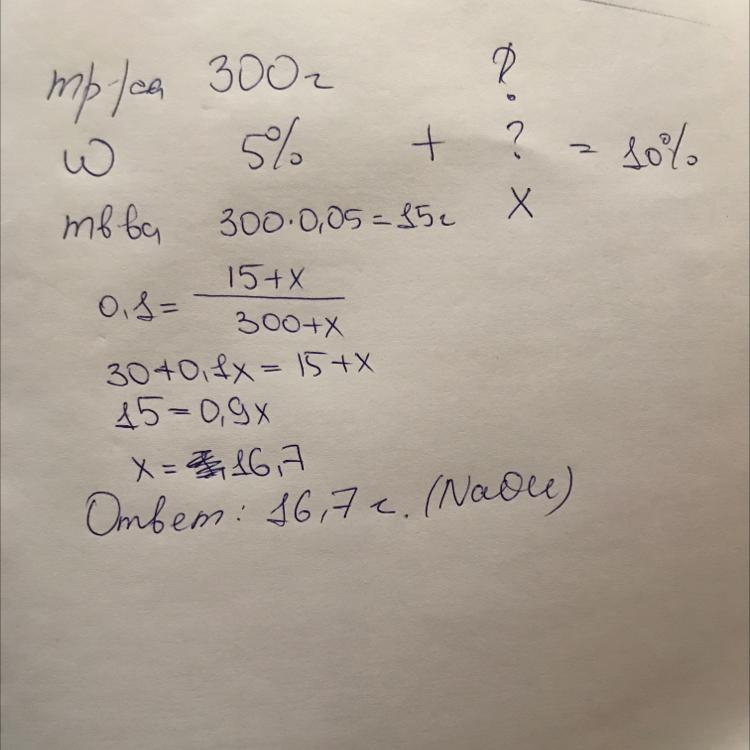 mр-ра 300г ?
ω 5% + ? = 10%
mв-ва 300·0,05=15г x
0,1= 15+x
300+x
30+0,1x = 15+x
15=0,9x
x= 16,7
Ответ: 16,7 г. (NaOH)